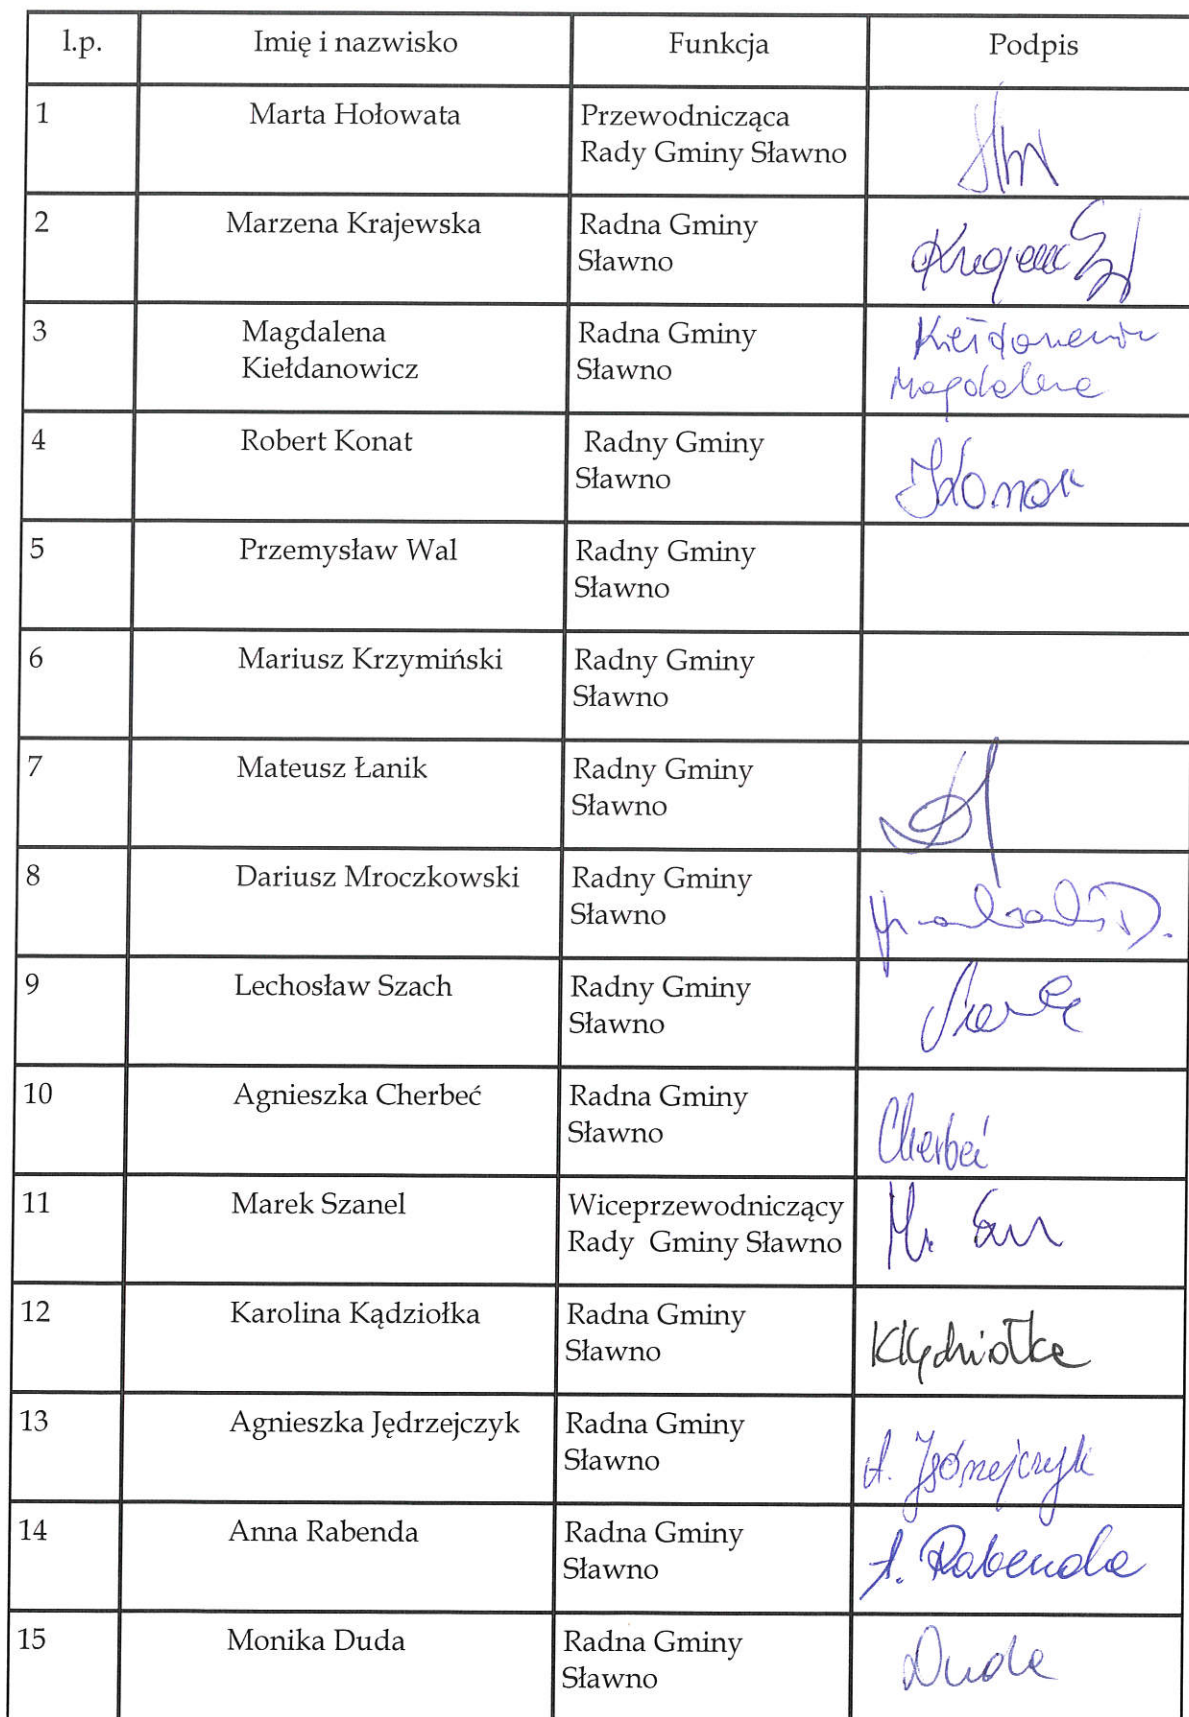 l.p. Imię i nazwisko Funkcja Podpis
1 Marta Hołowata Przewodnicząca
Rady Gminy Sławno
2 Marzena Krajewska Radna Gminy
Sławno
3 Magdalena Radna Gminy
Kiełdanowicz Sławno
Magdalena
4 Robert Konat Radny Gminy
Sławno
5 Przemysław Wal Radny Gminy
Sławno
6 Mariusz Krzymiński Radny Gminy
Sławno
7 Mateusz Łanik Radny Gminy
Sławno
8 Dariusz Mroczkowski Radny Gminy
Sławno
9 Lechosław Szach Radny Gminy
Sławno
10 Agnieszka Cherbeć Radna Gminy
Sławno
Cherbeć
11 Marek Szanel Wiceprzewodniczący
Rady Gminy Sławno
12 Karolina Kądziołka Radna Gminy
Sławno
KKądziołka
13 Agnieszka Jędrzejczyk Radna Gminy
Sławno
A. Jędrzejczyk
14 Anna Rabenda Radna Gminy
Sławno
A. Rabenda
15 Monika Duda Radna Gminy
Sławno
Duda